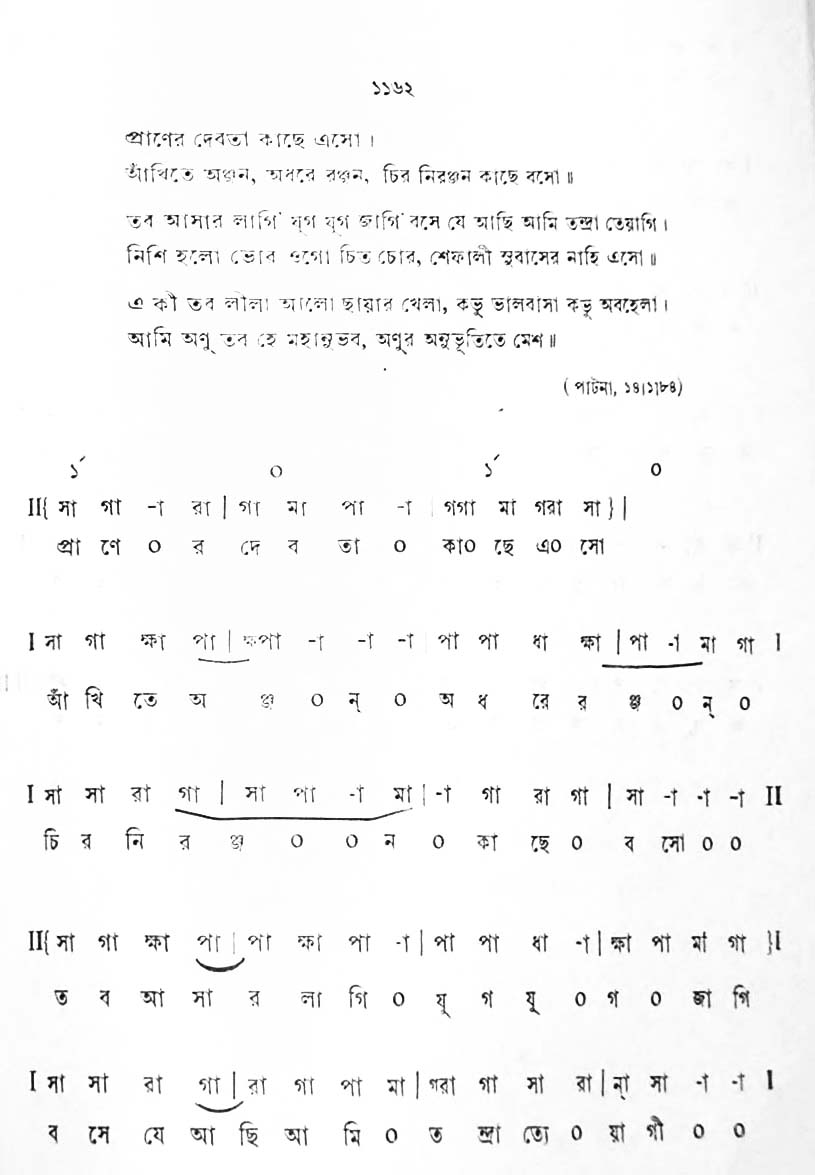 ১১৬২
প্রাণের দেবতা কাছে এসো ।
আঁখিতে অঞ্জন, অধরে রঞ্জন, চির নিরঞ্জন কাছে বসো ॥
তব আসার লাগি' যুগ যুগ জাগি' বসে যে আছি আমি তন্দ্রা তেয়াগি ।
নিশি হলো ভোর ওগো চিত চোর, শেফালী সুবাসের নাহি এসো ॥
এ কী তব লীলা আলো ছায়ার খেলা, কভু ভালবাসা কভু অবহেলা ।
আমি অণু তব হে মহানুভব, অণুর অনুভূতিতে মেশ ॥
( পাটনা, ১৪।১।৮৪)
১´ ০ ১´ ০
II{ সা গা -া রা | গা মা পা -া | গগা মা গরা সা } |
প্রা ণে ০ র দে ব তা ০ কা০ ছে এ০ সো
I সা গা ক্ষা পা | ক্ষপা -া -া -া | পা পা ধা ক্ষা | পা -া মা গা I
আঁ খি তে অ ঞ্জ ০ ন্ ০ অ ধ রে র ঞ্জ ০ ন্ ০
I সা সা রা গা | সা পা -া মা | -া গা রা গা | সা -া -া -া II
চি র নি র ঞ্জ ০ ০ ন ০ কা ছে ০ ব সো ০ ০
II{ সা গা ক্ষা পা | পা ক্ষা পা -া | পা পা ধা -া | ক্ষা পা মা গা }I
ত ব আ সা র লা গি ০ যু গ যু ০ গ ০ জা গি
I সা সা রা গা | রা গা পা মা | গরা গা সা রা | ন্া সা -া -া I
ব সে যে আ ছি আ মি ০ ত ন্দ্রা ত্যে ০ য়া গী ০ ০